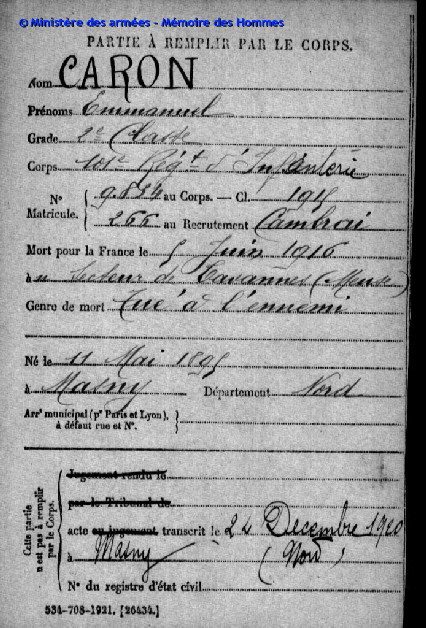 © Ministère des armées - Mémoire des Hommes
PARTIE À REMPLIR PAR LE CORPS.
Nom CARON
Prénoms Emmanuel
Grade 2e Classe
Corps 101e Régt d'Infanterie
N° Matricule. { 9834 au Corps. — Cl. 1915
266 au Recrutement Cambrai
Mort pour la France le 5 Juin 1916
à au Secteur de Tavannes (Meuse)
Genre de mort Tué à l'ennemi
Né le 11 Mai 1895
à Masny Département Nord
Arrt municipal (pr Paris et Lyon), }
à défaut rue et N°.
Cette partie n'est pas à remplir par le Corps.
Jugement rendu le
par le Tribunal de
acte ou jugement transcrit le 24 Décembre 1920
à Masny (Nord)
N° du registre d'état civil
534-708-1921. [26434.]